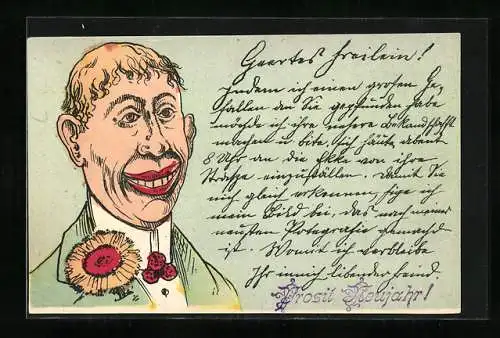 Geertes Freilein!
Indem ich einen grosen Ge-
fallen an Sie gepfunden habe
möchde ich ihre nehere Bekandschaft
machen u. bite, sich häute abent
8 Uhr an die Ekke von ihre
Strasse einzufällen. Damit Sie
mich gleich erkennen, fige ich
mein Bild bei, das nach meiner
neusten Potegrafie gemachd
ist. Womit ich verbleibe
Ihr innich libender Feind.
Prosit Neujahr!